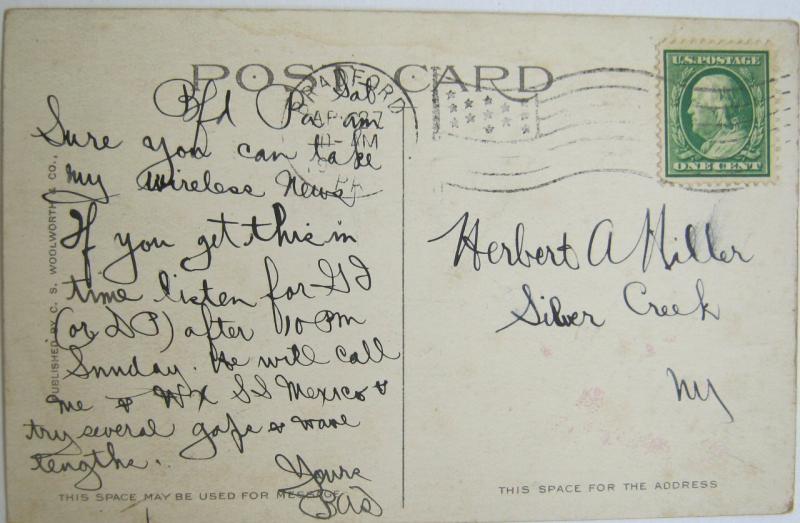 POST CARD
BRADFORD
APR 27
11-AM
PA.
U.S. POSTAGE
ONE CENT
Bfd Pa Sat am
Sure you can take
my wireless News
If you get this in
time listen for GI
(or DP) after 10 PM
Sunday. He will call
me & WX SS Mexico &
try several gaps & wave
lengths.
Yours
Herbert A Hiller
Silver Creek
NY
PUBLISHED BY C. S. WOOLWORTH & CO.,
THIS SPACE MAY BE USED FOR MESSAGE
THIS SPACE FOR THE ADDRESS